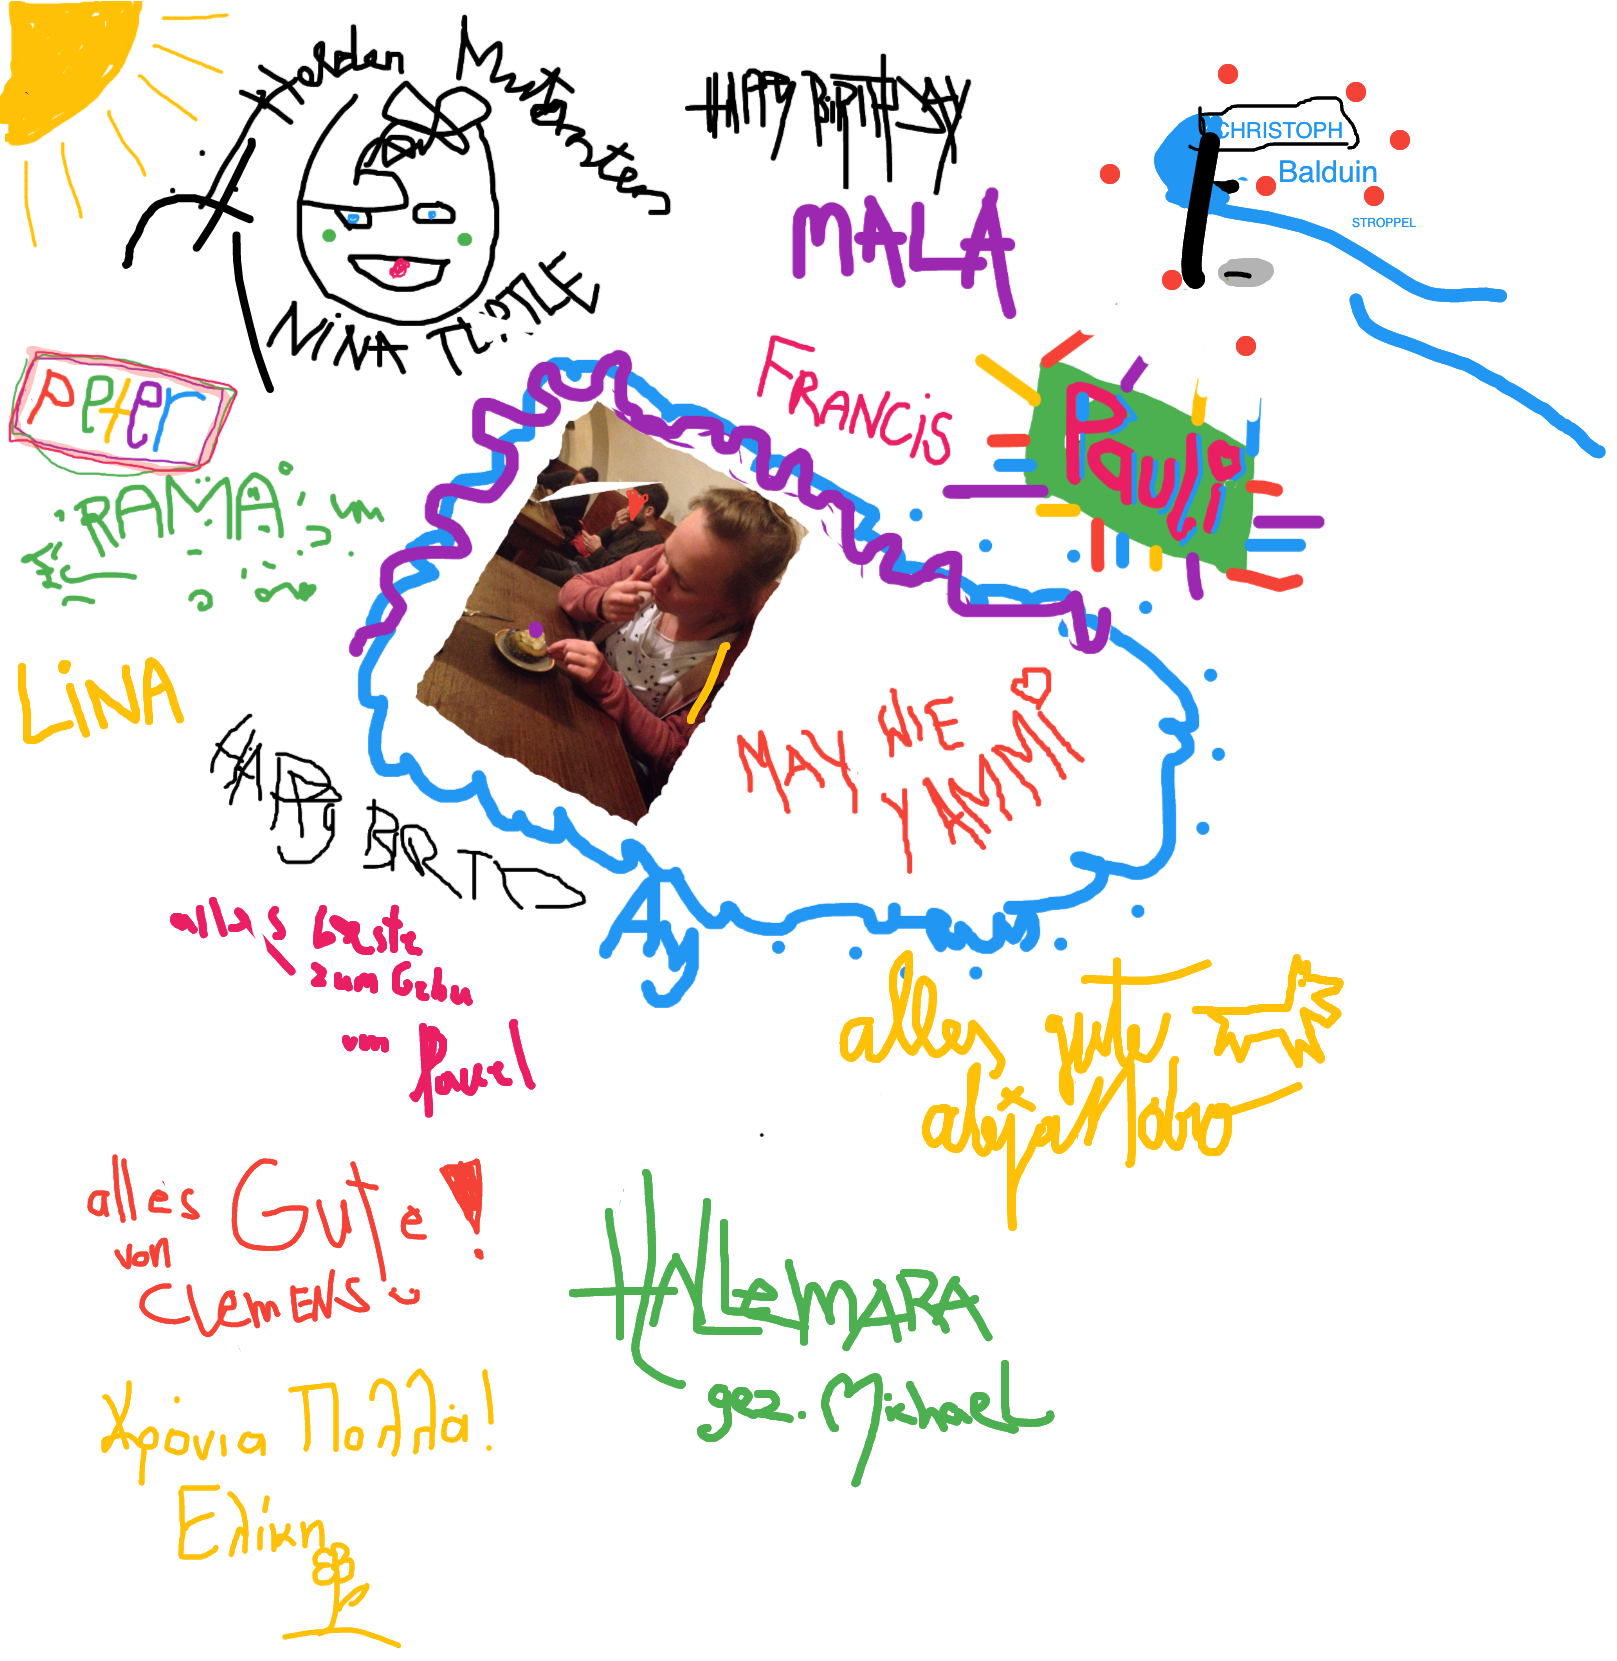 Helden Mutanten
NINA
HAPPY BIRTHDAY
MALA
CHRISTOPH
Balduin
STROPPEL
Peter
FRANCIS
Pauli
RAMA
LiNA
MAY WIE
YAMMi
HAPPy BIRTD
Ay
alles beste
zum Gebu
vom
Pavel
alles gute
alejandro
alles Gute!
von
ClemENS
HALLeMARA
gez. Michael
Χρόνια Πολλά!
Ελίκη